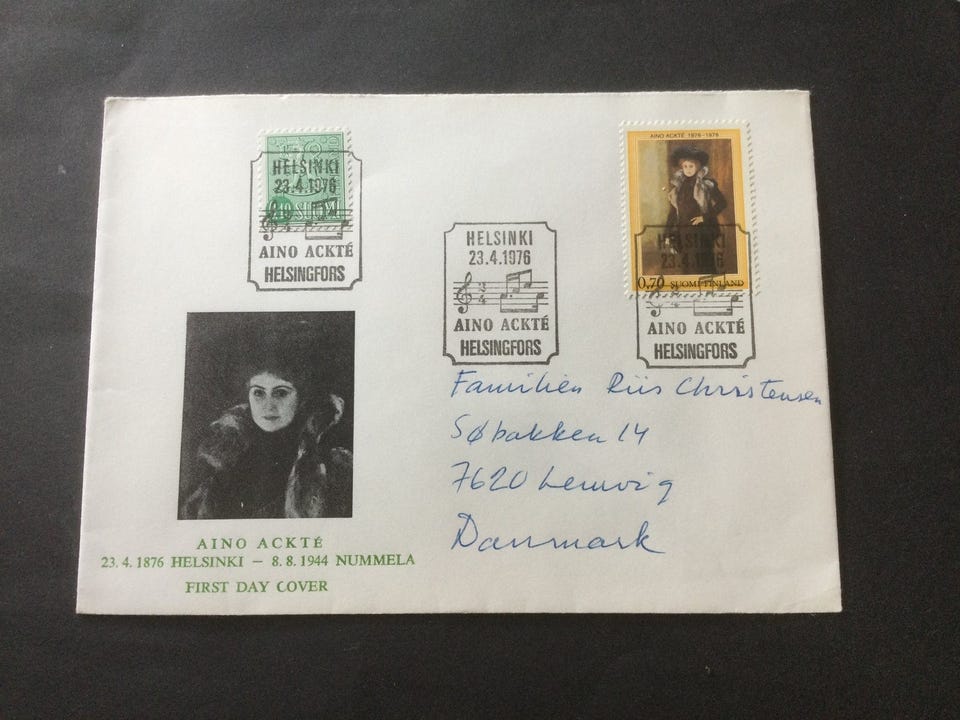 HELSINKI
23.4.1976
0,10 SUOMI
2
4
AINO ACKTÉ
HELSINGFORS
AINO ACKTÉ 1876-1976
HELSINKI
23.4.1976
0,70 SUOMI-FINLAND
AINO ACKTÉ
HELSINGFORS
HELSINKI
23.4.1976
2
4
AINO ACKTÉ
HELSINGFORS
Familien Riis Christensen
Søbakken 14
7620 Lemvig
Danmark
AINO ACKTÉ
23. 4. 1876 HELSINKI – 8. 8. 1944 NUMMELA
FIRST DAY COVER